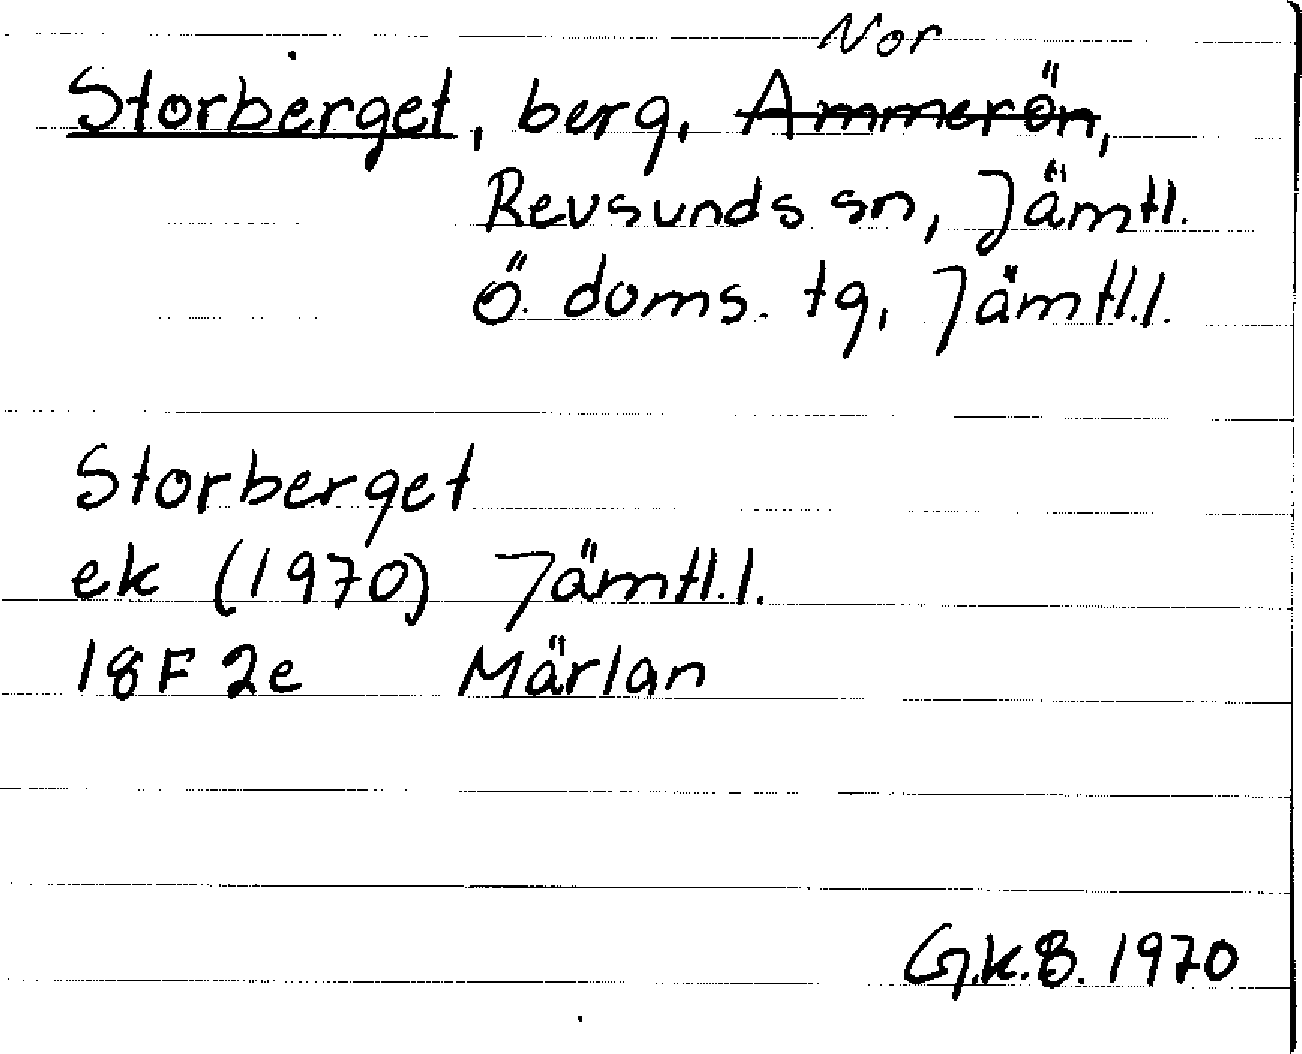 Nor
Storberget, berg, Ammerön,
Revsunds sn, Jämtl.
Ö. doms. tg, Jämtl.l.
Storberget
ek (1970) Jämtl.l.
18F 2e Märlan
G.K.B. 1970